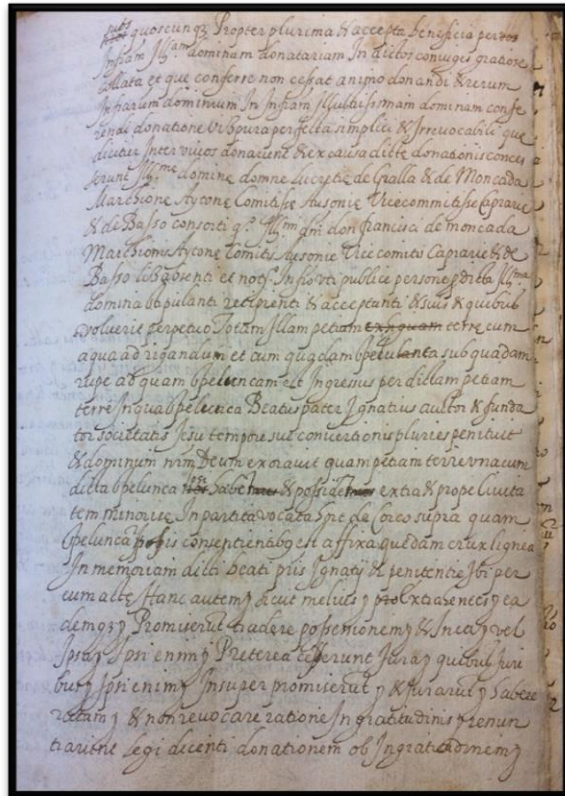 quoscunqz Propter plurima & accepta beneficia per
Infram Ill.am dominam donatariam In dictos coniuges gratiose
collata et que conferre non cessat animo donandi & rerum
Infrarum dominium In Infram Illustrissimam dominam confe
rendi donatione pura perfecta simplici & Irrevocabili que
dicitur Inter vivos donarunt & ex causa dicte donationis conces
serunt Ill.me domine domne lucretie de Gralla & de Moncada
Marchione Aytone Comitisse Ausonie Vicecomitisse Caprarie
& de Basso consorti q.º Ill.mi dni don francisci de moncada
Marchionis Aytone Comitis Ausonie Vice comitis Caprarie & de
Basso absenti et not.º Infro vti publice persone p dicta Ill.ma
domina stipulanti recipienti & acceptanti & suis & quibus
voluerit perpetuo Totam Illam petiam exiguam terre cum
aqua ad rigandum et cum quadam spelunca sub quadam
rupe ad quam speluncam est Ingressus per dictam petiam
terre In qua spelunca Beatus pater Ignatius auctor & funda
tor societatis Jesu tempore sue conversionis pluries penituit
& dominum nrm Deum exoravit quam petiam terre vna cum
dicta spelunca habe & posside extra & prope Civita
tem minorise In partita vocata supra quam
speluncam ipsis consentientibus est affixa quedam crux lignea
In memoriam dicti beati pris Ignatij & penitentie Ibi per
eum acte Hanc autem sicut melius extrahentes ea
demqz Promiserut tradere possessionem & Inca vel
Ipsa Ipsi enim Preterea cesserunt Jura quibus Juri
bus Ipsi enim Insuper promiserut & Jurarut habere
ratam & non revocare ratione Ingratitudinis renun
tiarunt legi dicenti donationem ob Ingratitudinem